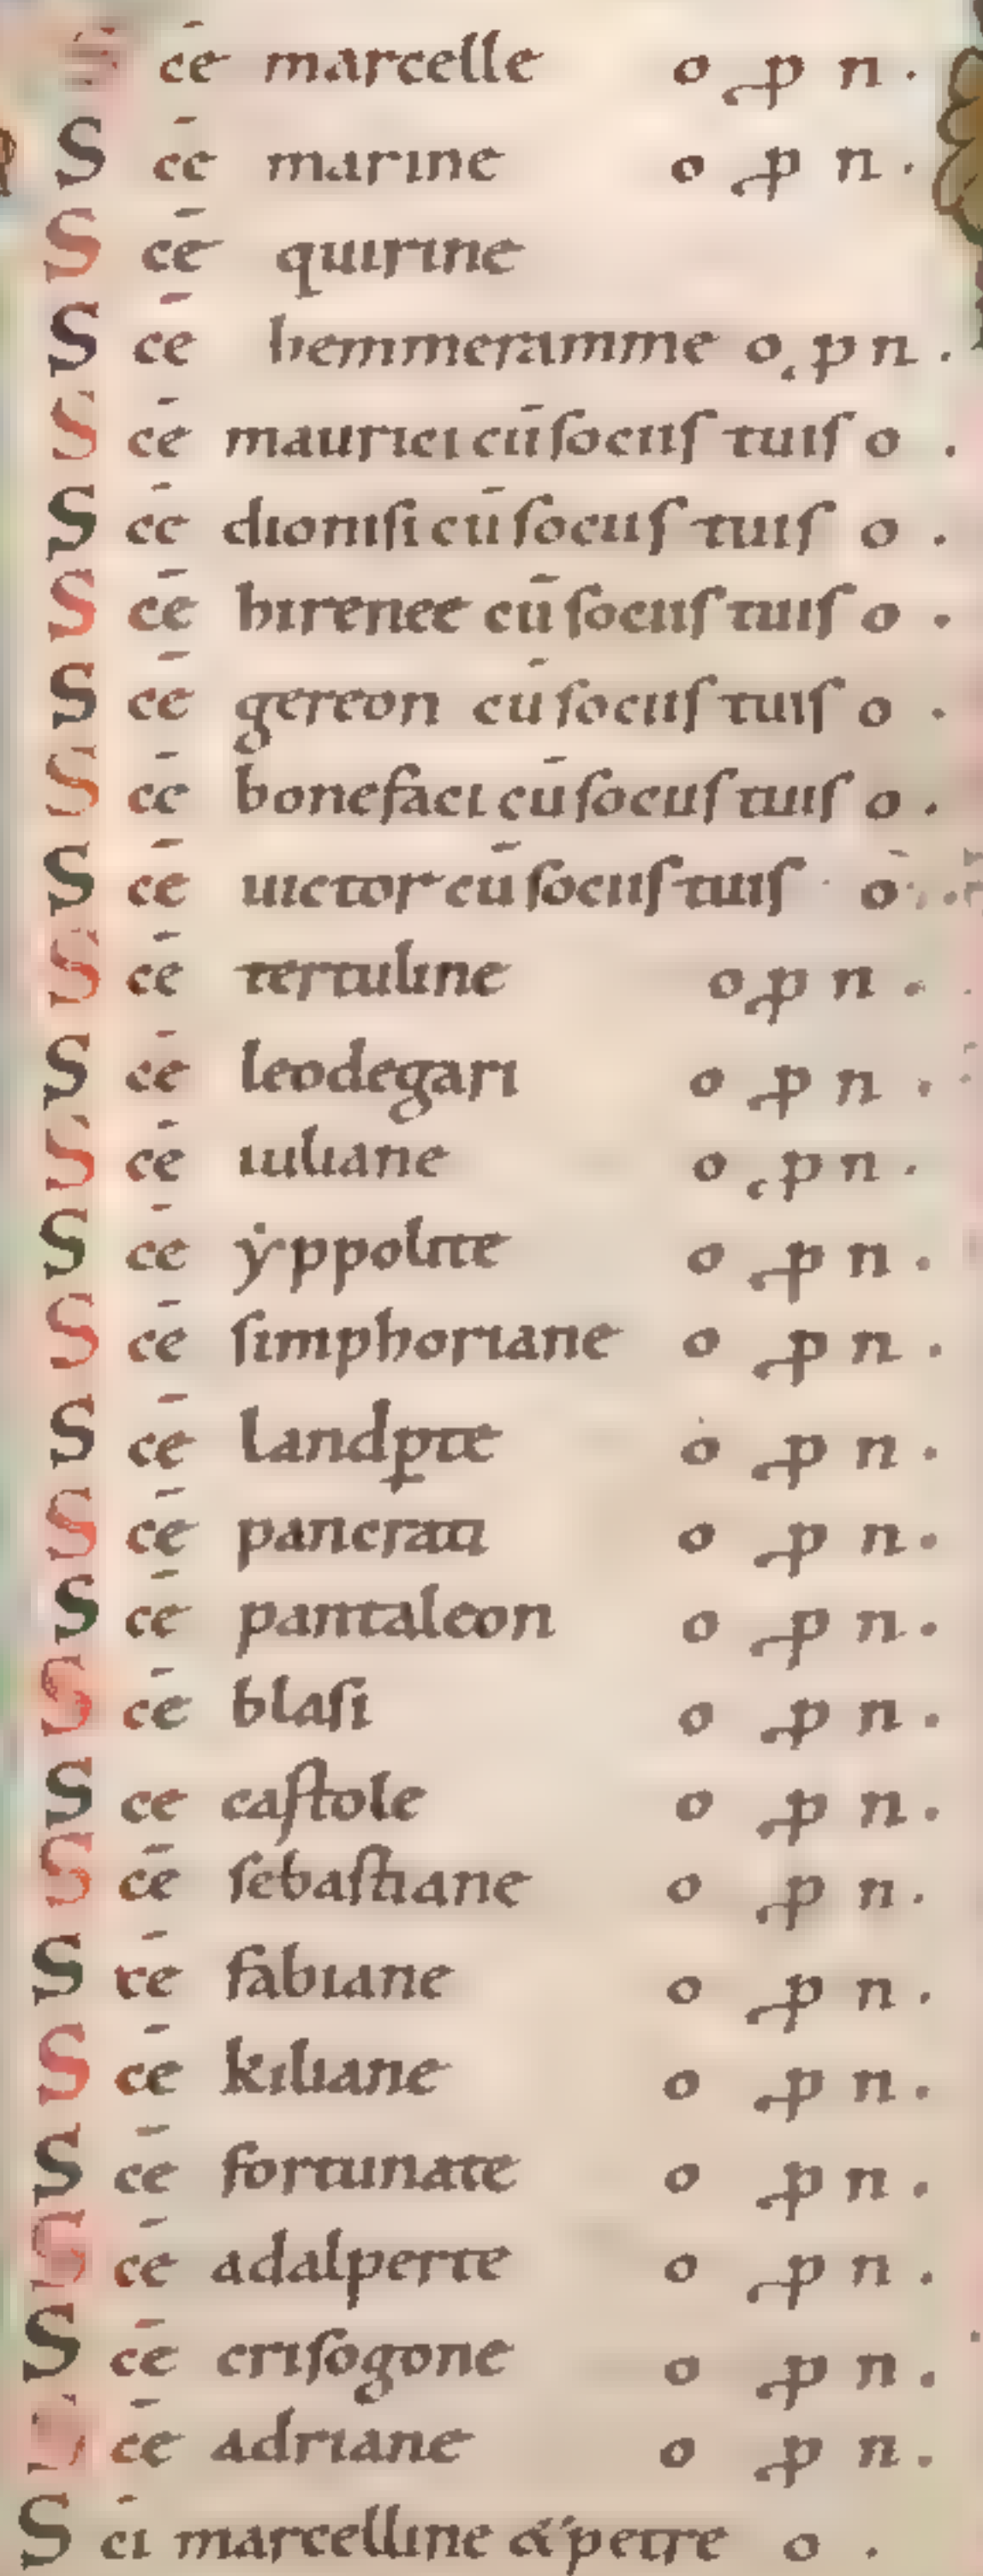 S cē marcelle o ꝓ n .
S cē marine o ꝓ n .
S cē quirine
S cē hemmeramme o ꝓ n .
S cē maurici cū sociis tuis o .
S cē dionisi cū sociis tuis o .
S cē hirenee cū sociis tuis o .
S cē gereon cū sociis tuis o .
S cē bonefaci cū sociis tuis o .
S cē uictor cū sociis tuis o .
S cē tertuline o ꝓ n .
S cē leodegari o ꝓ n .
S cē iuliane o ꝓ n .
S cē ẏppolite o ꝓ n .
S cē simphoriane o ꝓ n .
S cē landꝑte o ꝓ n .
S cē pancrati o ꝓ n .
S cē pantaleon o ꝓ n .
S cē blasi o ꝓ n .
S ce castole o ꝓ n .
S cē sebastiane o ꝓ n .
S cē fabiane o ꝓ n .
S cē kiliane o ꝓ n .
S cē fortunate o ꝓ n .
S cē adalperte o ꝓ n .
S cē crisogone o ꝓ n .
S cē adriane o ꝓ n .
S cī marcelline & petre o .